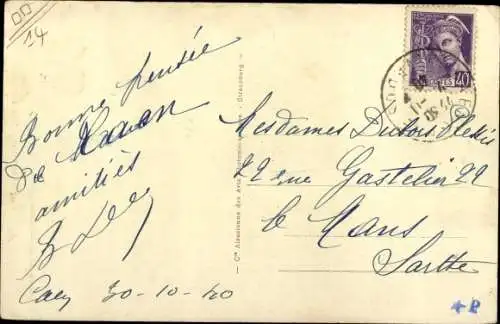 14
Bonne pensée
de
amitiés
Caen 30-10-40
Cie Alsacienne des Arts Strasbourg
40
Mesdames Dubois
22 rue Gastelier 22
le Mans
Sarthe